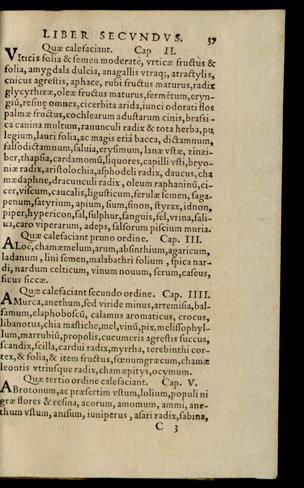 LIBER SECVNDVS. 37
Quæ calefaciant. Cap II.
VIticis folia & semen moderatè, vrticæ fructus &
folia, amygdala dulcia, anagallis vtraq;, atractylis,
cnicus agrestis, aphace, rubi fructus maturus, radix
glycyrrhizæ, oleæ fructus maturus, fermētum, eryn-
giū, resinę omnes, cicerbita arida, iunci odorati flos
palmæ fructus, cochlearum adustarum cinis, brassi-
ca canina multum, ranunculi radix & tota herba, pu
legium, lauri folia, ac magis etiā bacca, dictamnum,
falsodictamnum, saluia, erysimum, lanæ vstæ, zinzi-
ber, thapsia, cardamomū, liquores, capilli vsti, bryo-
niæ radix, aristolochia, asphodeli radix, daucus, cha
mædaphne, dracunculi radix, oleum raphaninū, ci-
cer, viscum, caucalis, ligusticum, ferulæ semen, saga-
penum, satyrium, apium, sium, sinon, styrax, idnon,
piper, hypericon, sal, sulphur, sanguis, fel, vrina, sali-
ua, caro viperarum, adeps, salsorum piscium muria.
Quæ calefaciant primo ordine. Cap. III.
ALoë, chamæmelum, arum, absinthium, agaricum,
ladanum, lini semen, malabathri folium, spica nar-
di, nardum celticum, vinum nouum, serum, caseus,
ficus siccæ.
Quæ calefaciant secundo ordine. Cap. IIII.
AMurca, anethum, sed viride minus, artemisia, bal-
samum, elaphoboscū, calamus aromaticus, crocus,
libanotus, chia mastiche, mel, vinū, pix, melissophyl-
lum, marrubiū, propolis, cucumeris agrestis succus,
scandix, scilla, cardui radix, myrrha, terebinthi cor-
tex, & folia, & item fructus, fœnumgræcum, chamæ
leontis vtriusque radix, chamæpitys, ocymum.
Quæ tertio ordine calefaciant. Cap. V.
ABrotonum, ac præsertim vstum, lolium, populi ni
græ flores & resina, acorum, amomum, ammi, ane-
thum vstum, anisum, iuniperus, asari radix, sabina,
C 3